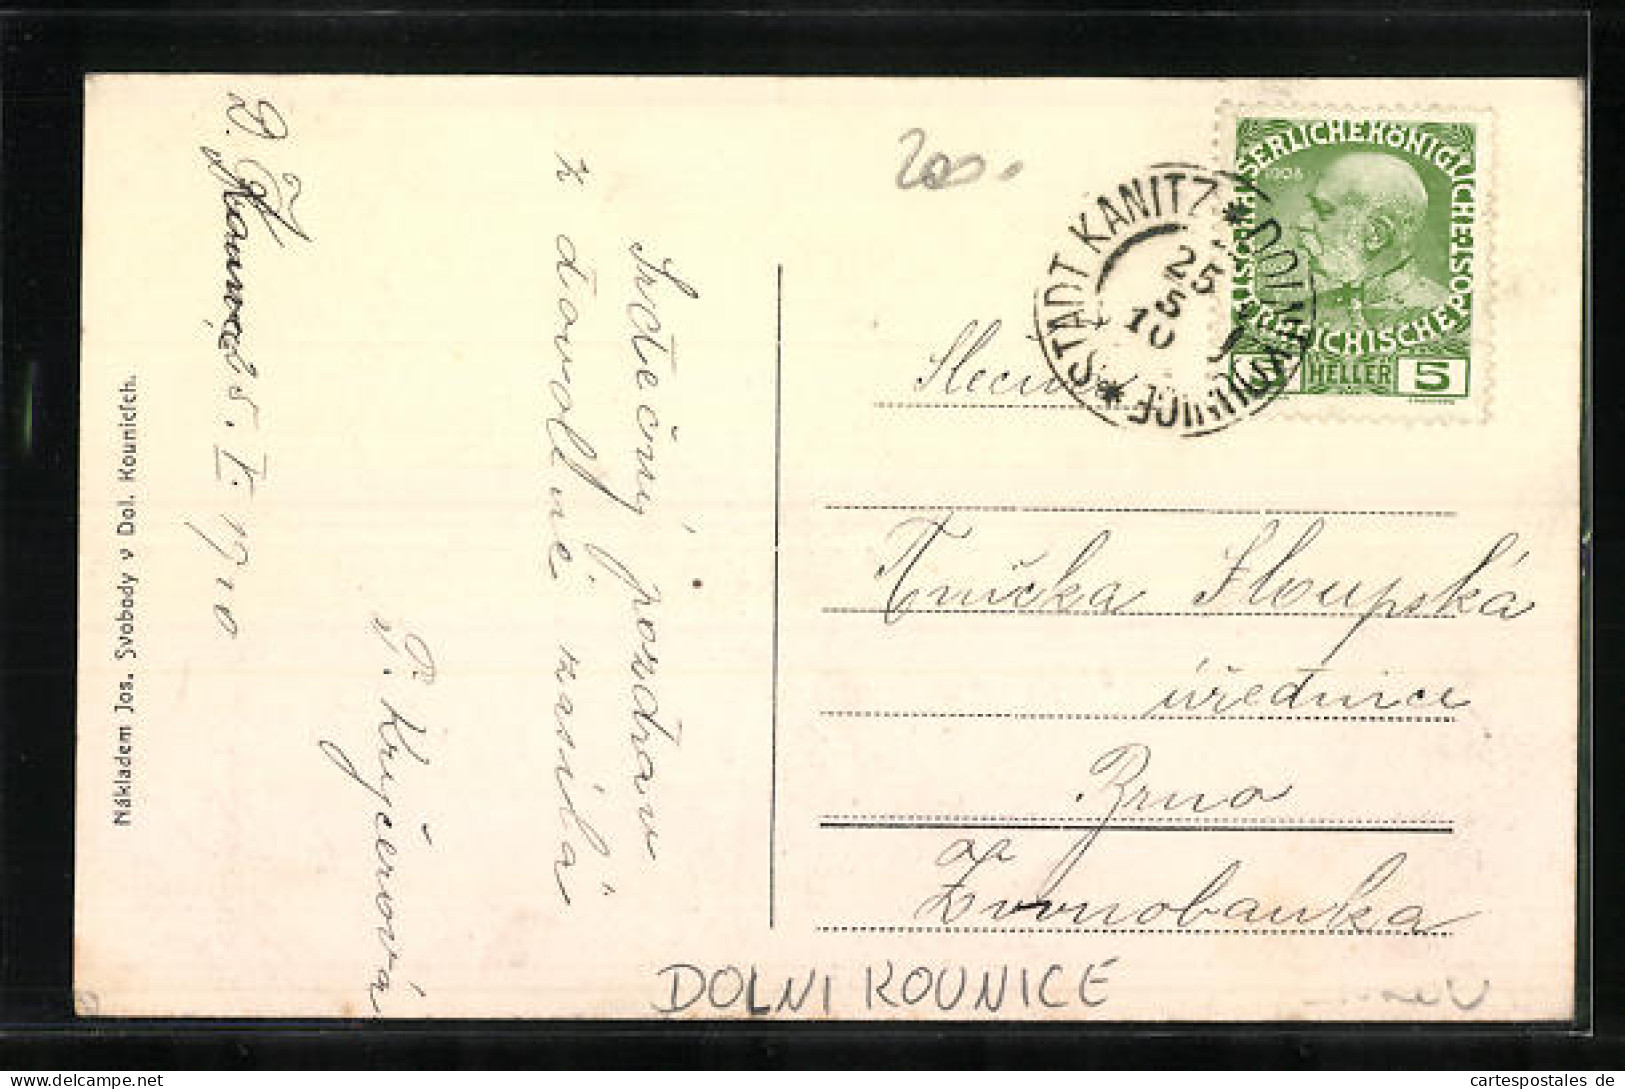 Nákladem Jos. Svobody v Dol. Kounicích.
1910
Srdečný pozdrav
z dovolené zasílá
P. Kryčerová
200.
KAISERLICHEKÖNIGLICHE ÖSTERREICHISCHE POST
1908
5 HELLER 5
STADT KANITZ * DOLNÍ KOUNICE *
25
5
10
Slečna
Anička Sloupská
úřednice
Brno
Živnobanka
DOLNI KOUNICE
cartespostales de